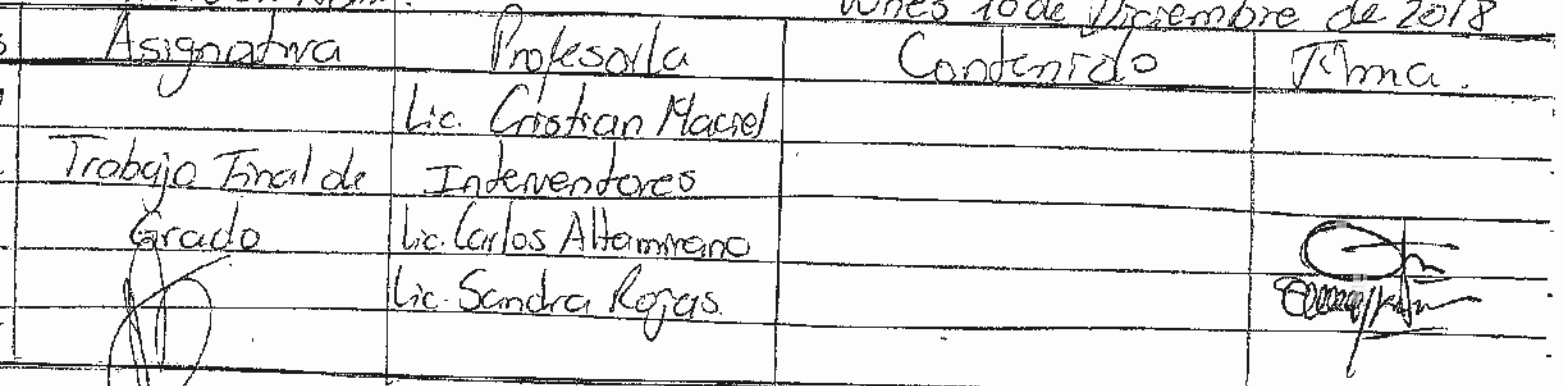 Lunes 10 de Diciembre de 2018
Asignatura Profesor/a Contenido Firma.
Lic. Cristian Maciel
Trabajo Final de Interventores
Grado Lic. Carlos Altamirano
Lic. Sandra Rojas.